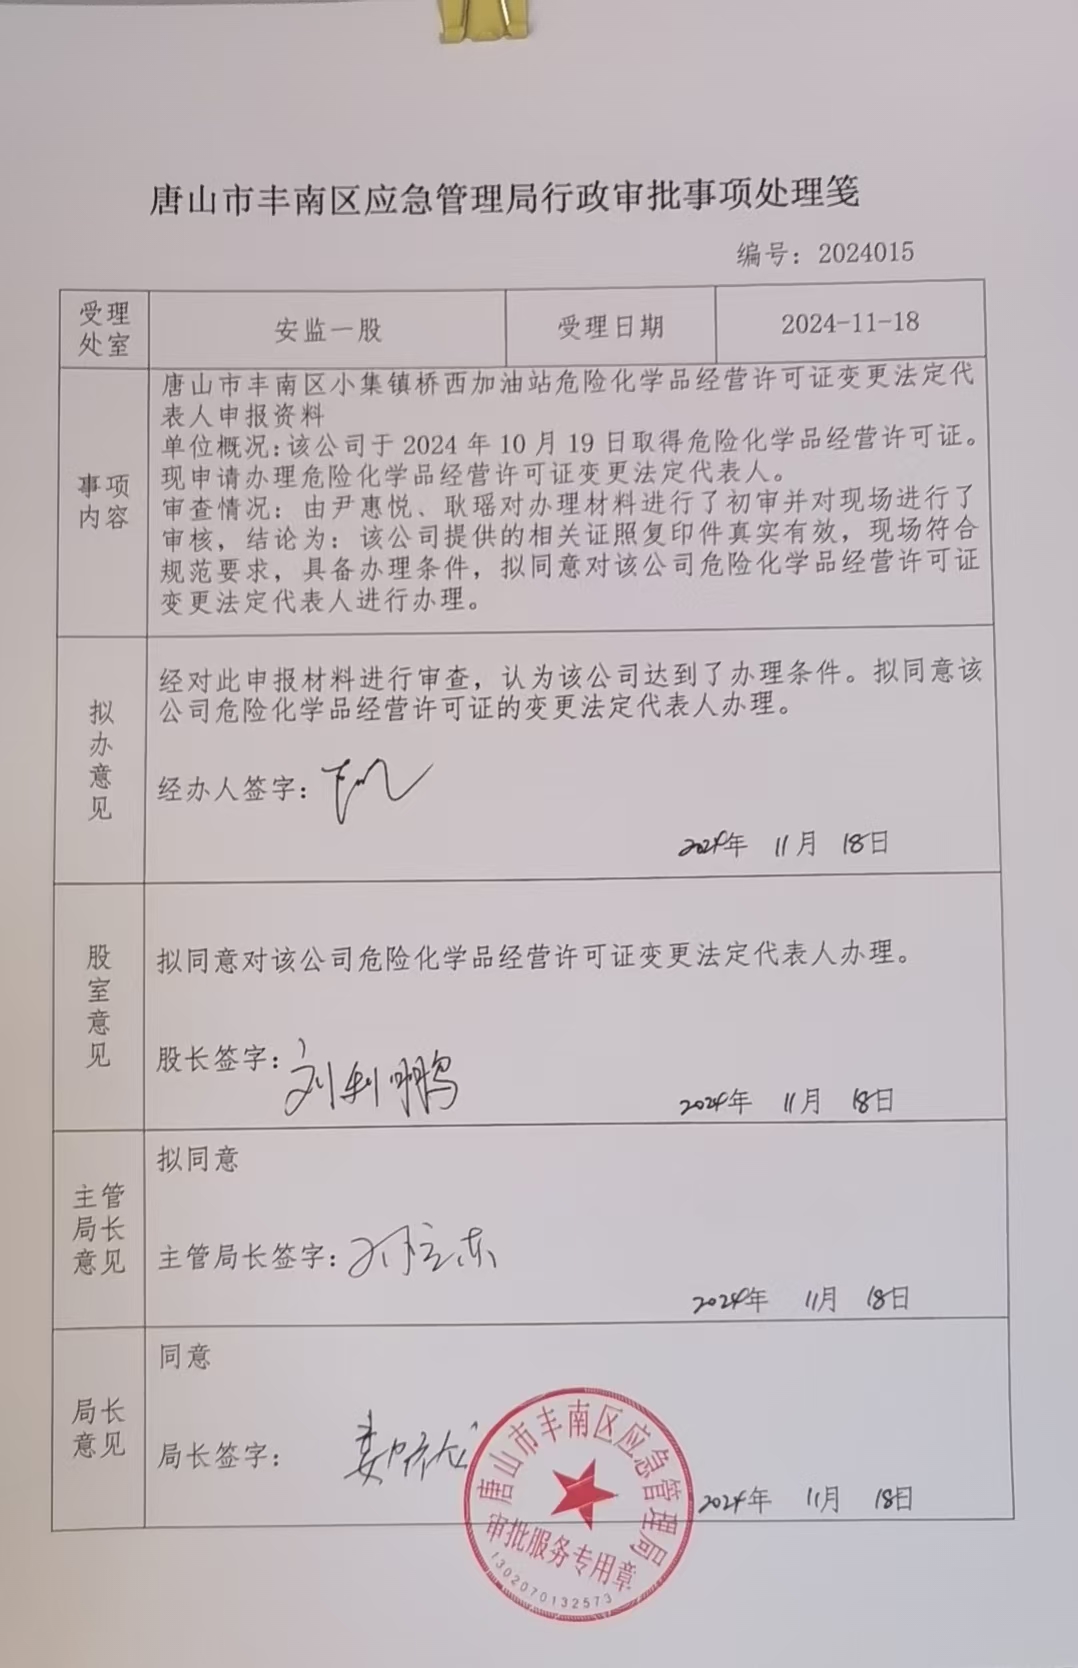 唐山市丰南区应急管理局行政审批事项处理笺
编号：2024015
受理
处室
安监一股
受理日期
2024-11-18
事项
内容
唐山市丰南区小集镇桥西加油站危险化学品经营许可证变更法定代
表人申报资料
单位概况:该公司于 2024 年 10 月 19 日取得危险化学品经营许可证。
现申请办理危险化学品经营许可证变更法定代表人。
审查情况：由尹惠悦、耿瑶对办理材料进行了初审并对现场进行了
审核，结论为：该公司提供的相关证照复印件真实有效，现场符合
规范要求，具备办理条件，拟同意对该公司危险化学品经营许可证
变更法定代表人进行办理。
拟
办
意
见
经对此申报材料进行审查，认为该公司达到了办理条件。拟同意该
公司危险化学品经营许可证的变更法定代表人办理。
经办人签字:
2024年 11月 18日
股
室
意
见
拟同意对该公司危险化学品经营许可证变更法定代表人办理。
股长签字: 刘利鹏
2024年 11月 18日
主管
局长
意见
拟同意
主管局长签字:
2024年 11月 18日
局长
意见
同意
局长签字:
2024年 11月 18日
唐山市丰南区应急管理局
审批服务专用章
1302070132573